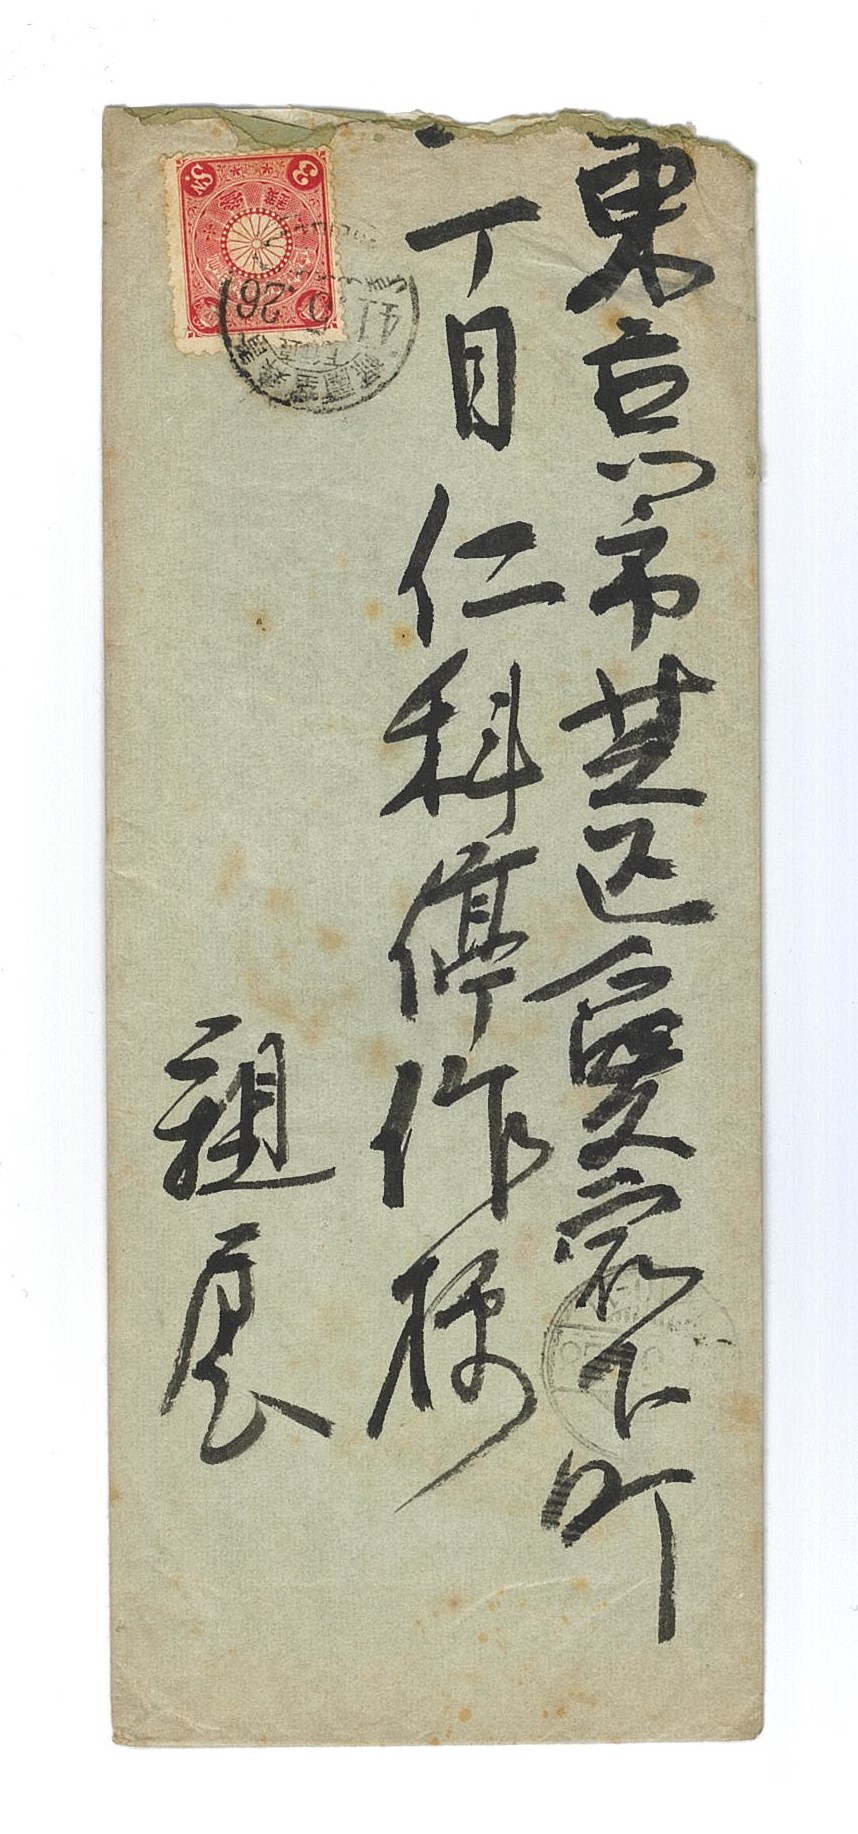 東京市芝区愛宕下町
一丁目仁科停作様
親展
3 Sn.
41 26